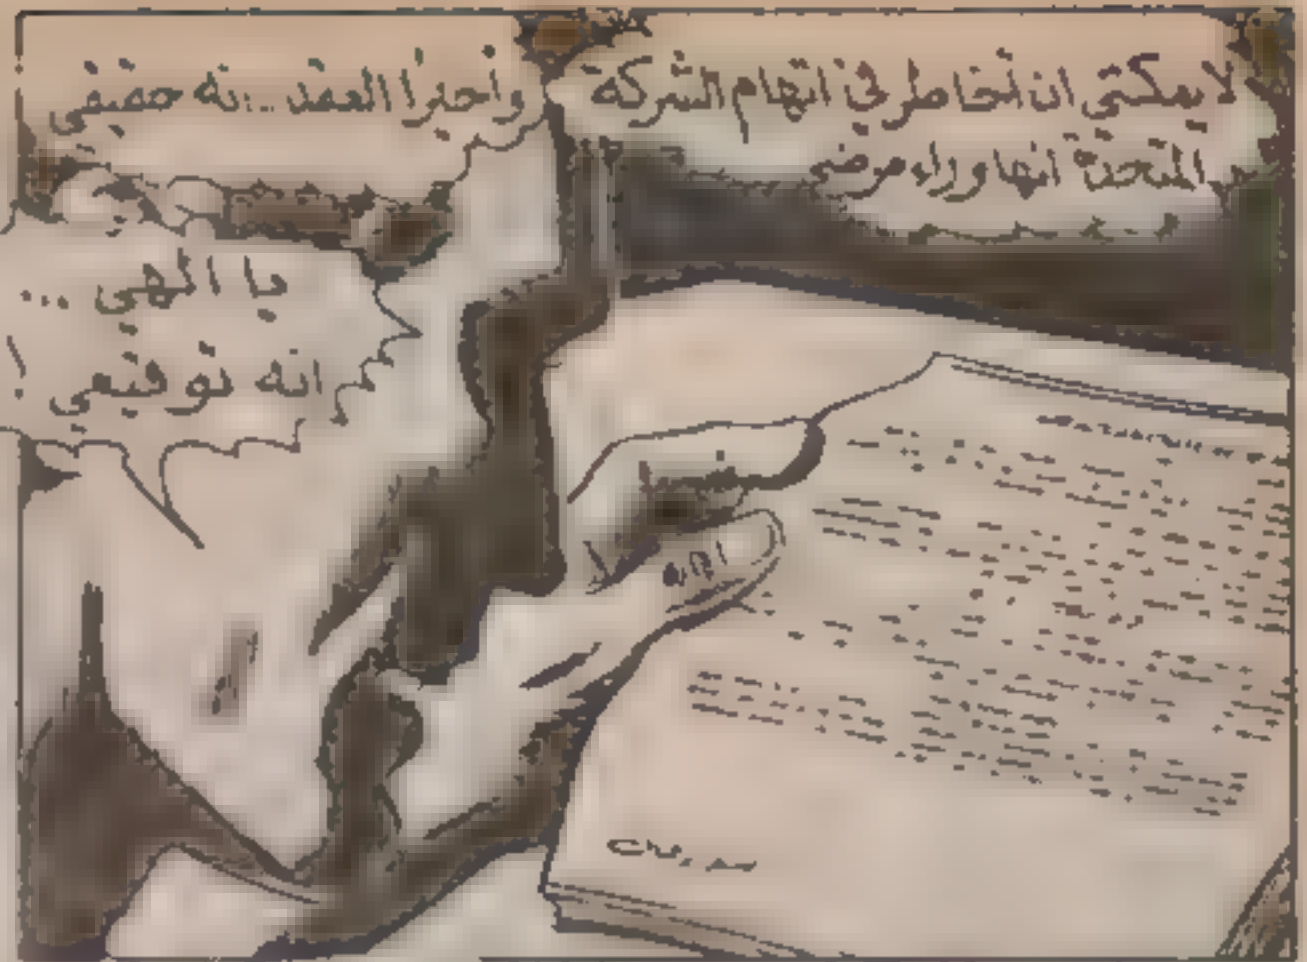 لا يمكنني ان اخاطر في اتهام الشركة
المتحدة انها وراء مرضي
وأخيرا العقد .. انه حقيقي
يا الهي ...
انه توقيعي !